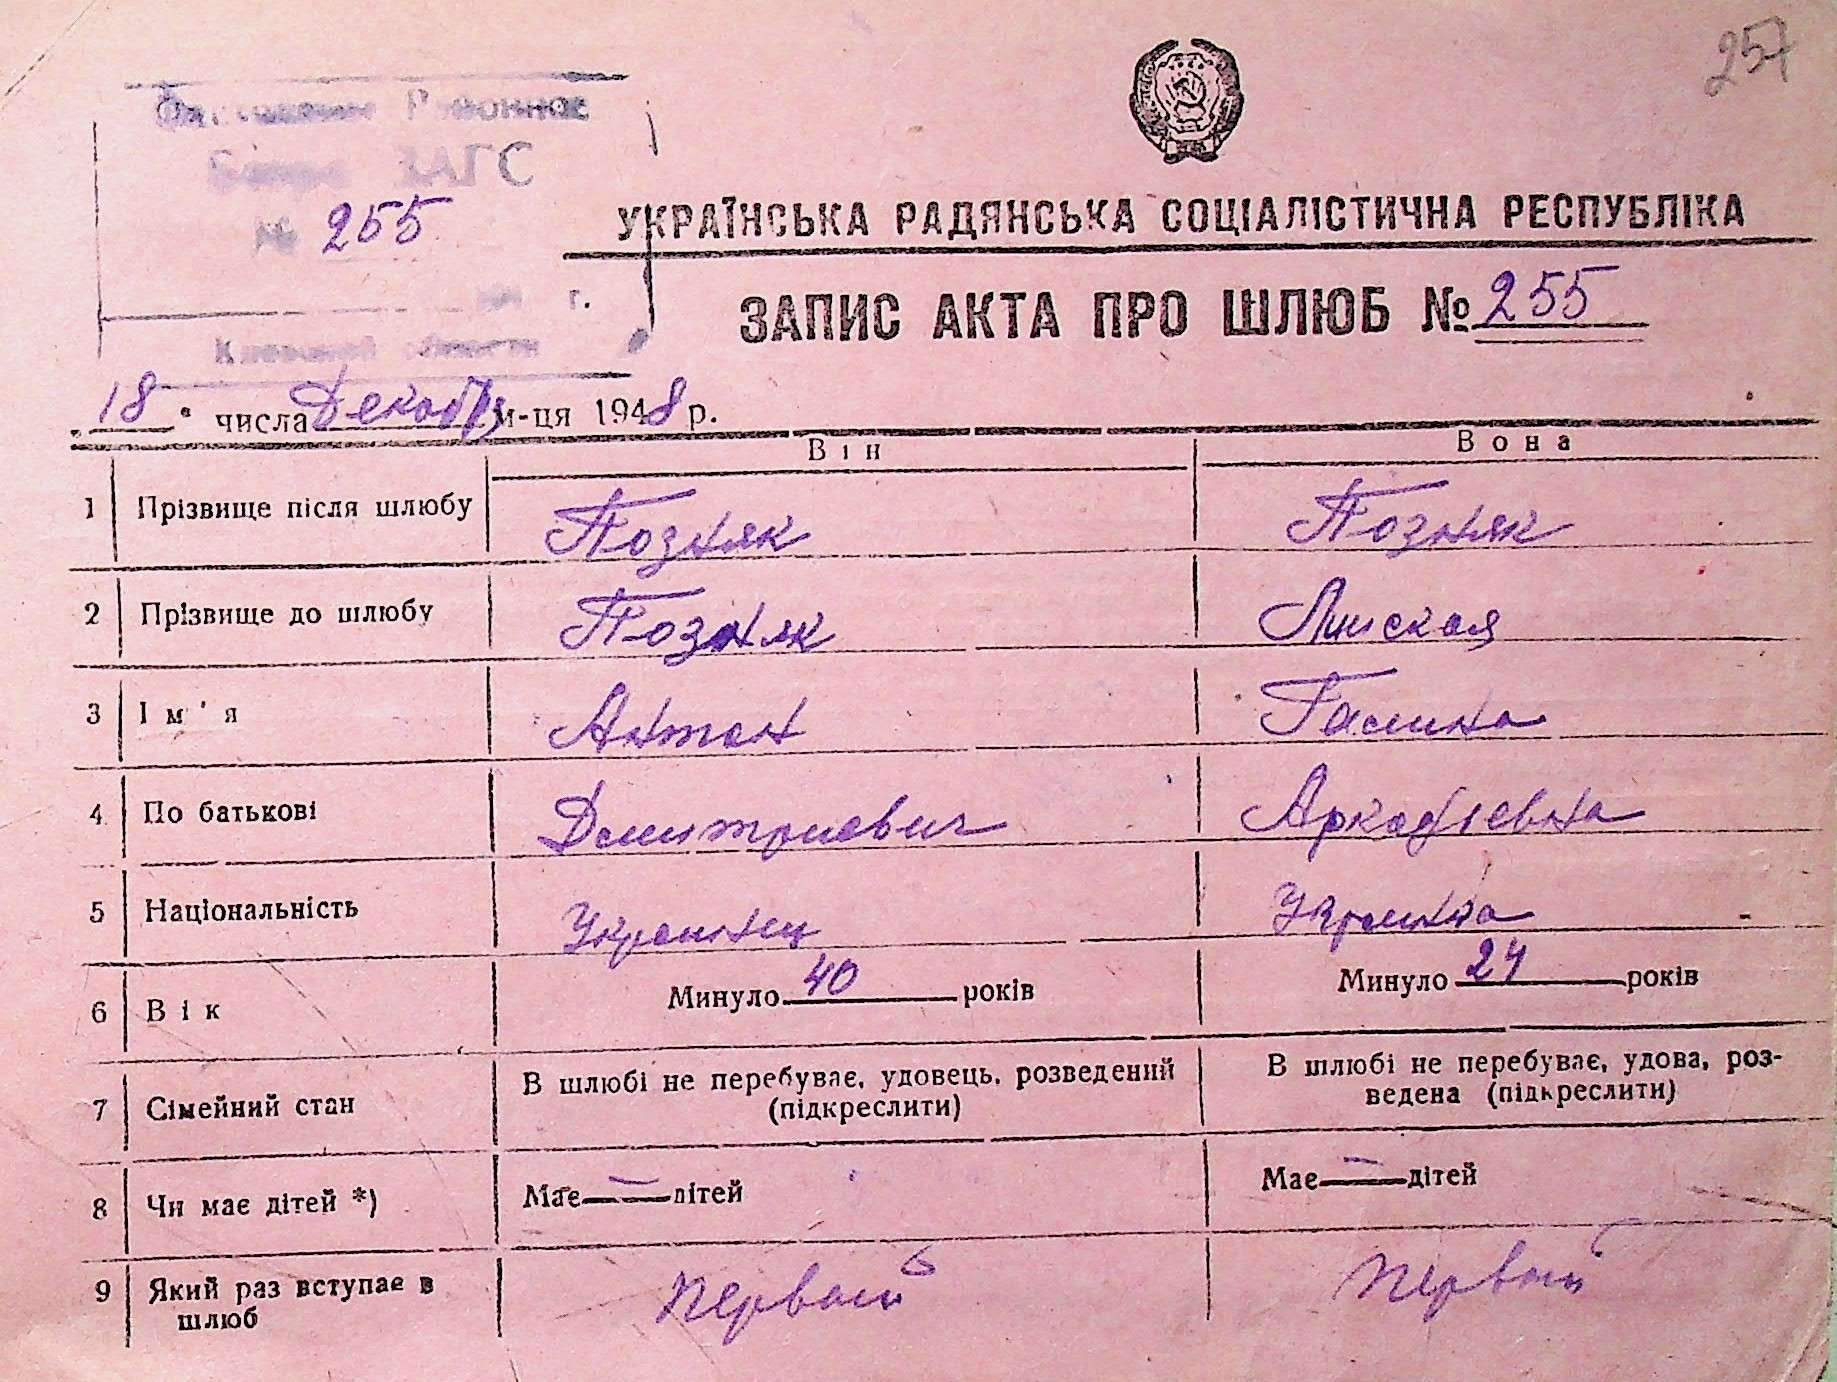 257
ЗАГС
№ 255
г.
УКРАЇНСЬКА РАДЯНСЬКА СОЦІАЛІСТИЧНА РЕСПУБЛІКА
ЗАПИС АКТА ПРО ШЛЮБ № 255
18 числа Декабря м-ця 1948 р.
Він Вона
1 Прізвище після шлюбу Позняк Позняк
2 Прізвище до шлюбу Позняк
3 Ім'я Антон Галина
4 По батькові Дмитриевич Аркадіевна
5 Національність Украинец Укр-инка
6 Вік Минуло 40 років Минуло 24 років
7 Сімейний стан В шлюбі не перебуває, удовець, розведений В шлюбі не перебуває, удова, роз-
(підкреслити) ведена (підкреслити)
8 Чи має дітей *) Має — дітей Має — дітей
9 Який раз вступає в Первый Первый
шлюб